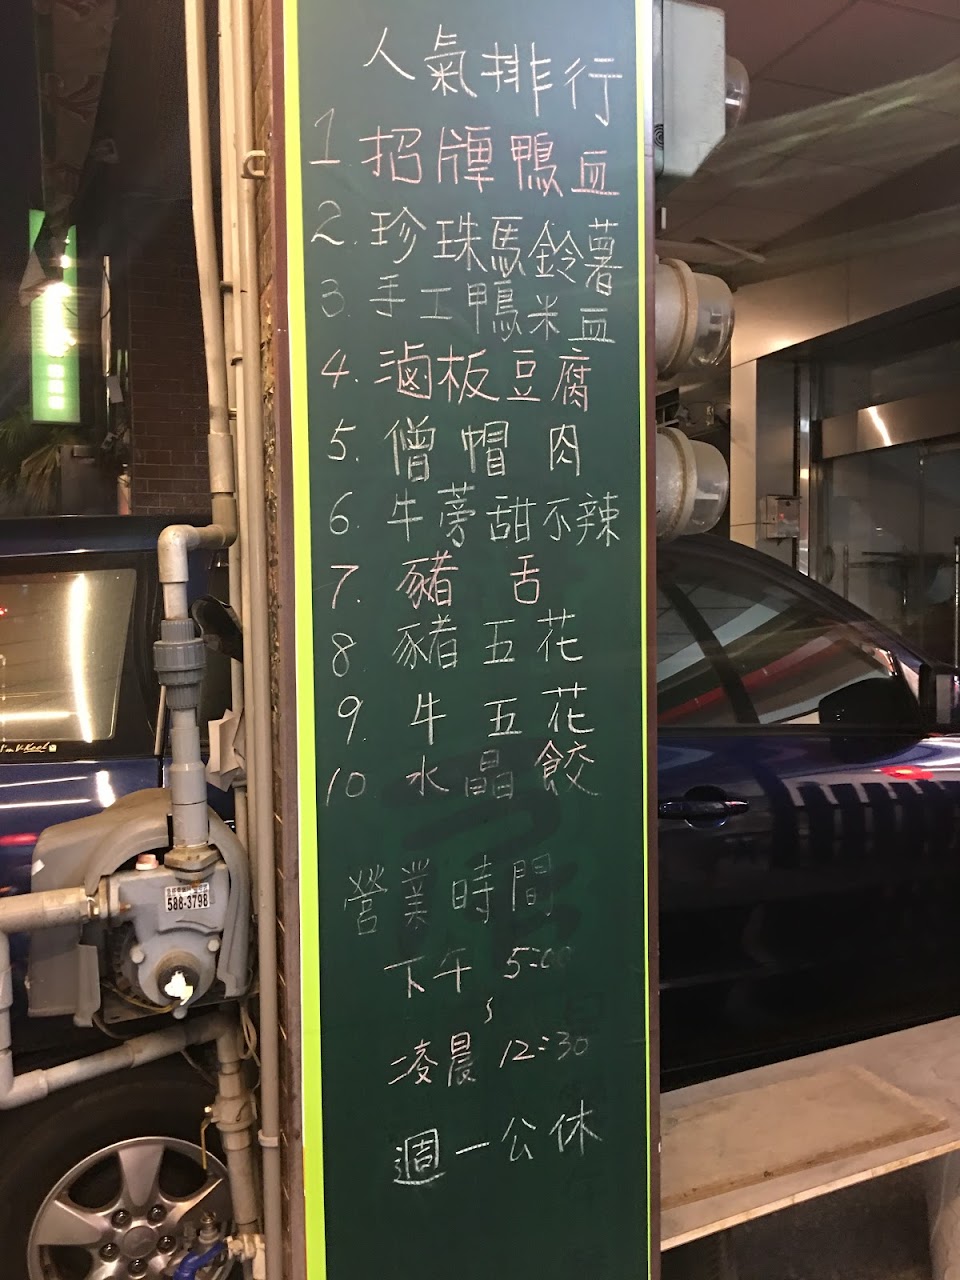 人氣排行
1 招牌鴨血
2. 珍珠馬鈴薯
3. 手工鴨米血
4. 滷板豆腐
5. 僧帽肉
6. 牛蒡甜不辣
7. 豬舌
8. 豬五花
9. 牛五花
10. 水晶餃
營業時間
下午 5:00
~
凌晨 12:30
週一公休
588-3798